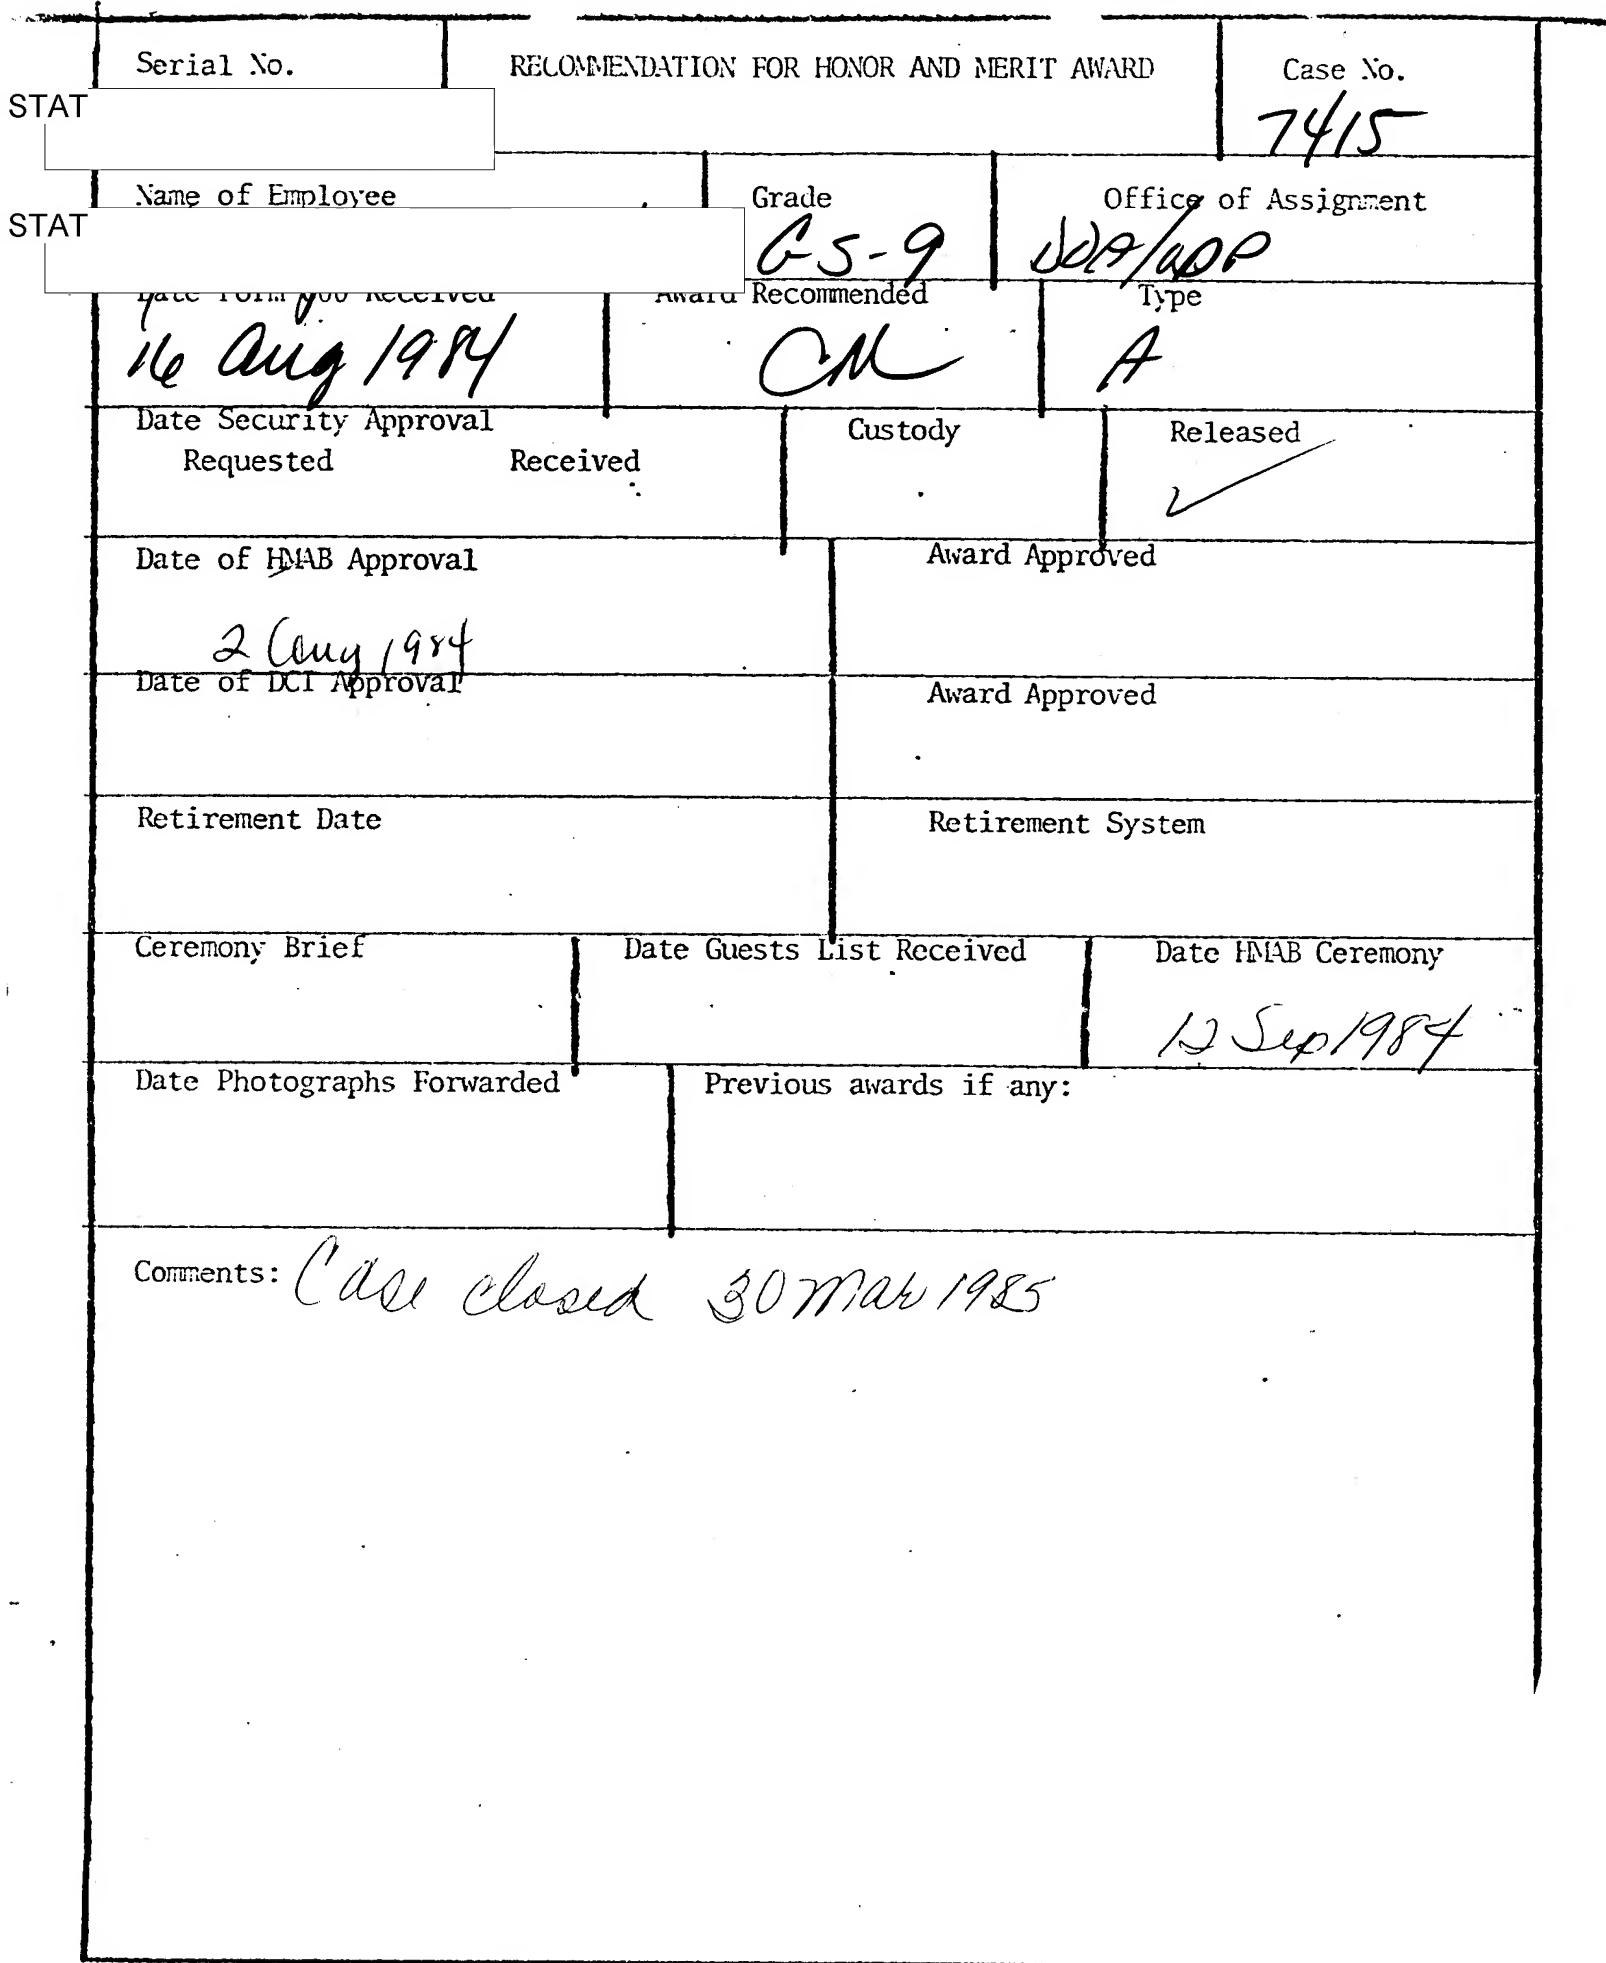 Serial No.
RECOMMENDATION FOR HONOR AND MERIT AWARD
Case No.
STAT
7415
Name of Employee
Grade
Office of Assignment
STAT
GS-9
Received
Award Recommended
Type
16 Aug 1984
CM
A
Date Security Approval
Custody
Released
Requested Received
✓
Date of HMAB Approval
Award Approved
Aug 1984
Date of DCI Approval
Award Approved
Retirement Date
Retirement System
Ceremony Brief
Date Guests List Received
Date HMAB Ceremony
12 Sep 1984
Date Photographs Forwarded
Previous awards if any:
Comments: Case closed 30 Mar 1985